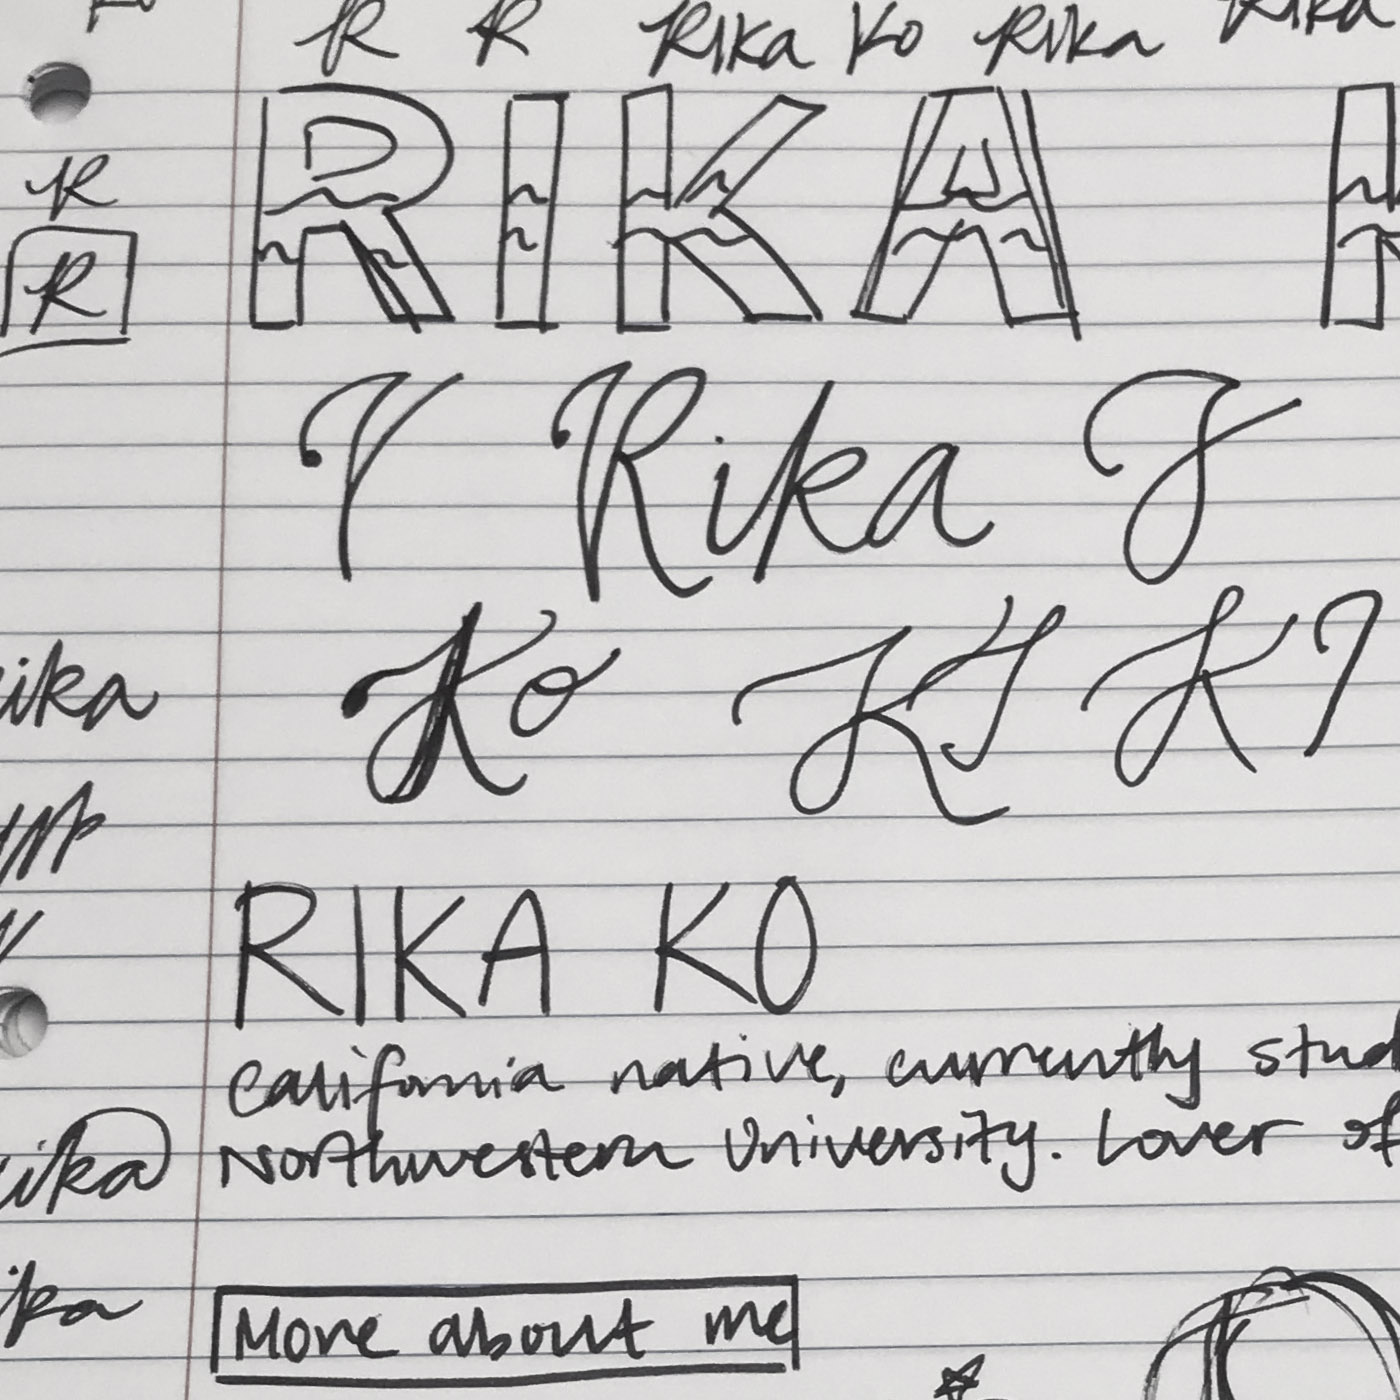 R R Rika Ko Rika Rika
RIKA
R
R
Rika
Ko K K
ika
RIKA KO
California native, currently stud
Northwestern University. Lover of
ika
ika
More about me